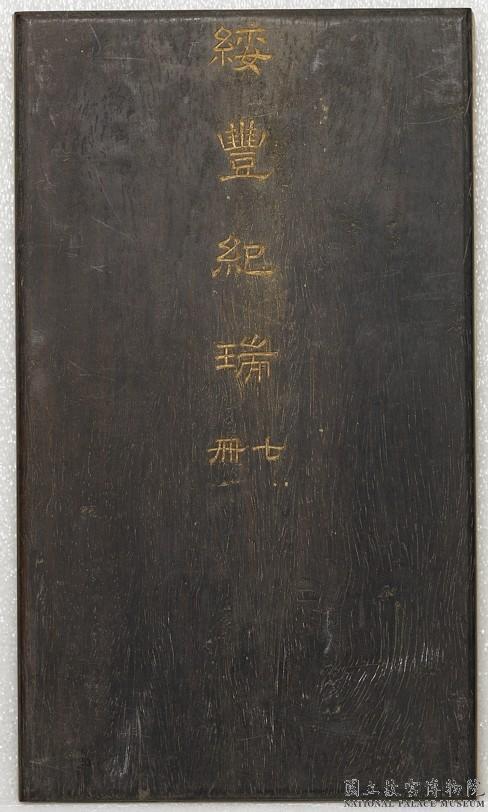 綏豐紀瑞
七冊
國立故宮博物院
NATIONAL PALACE MUSEUM